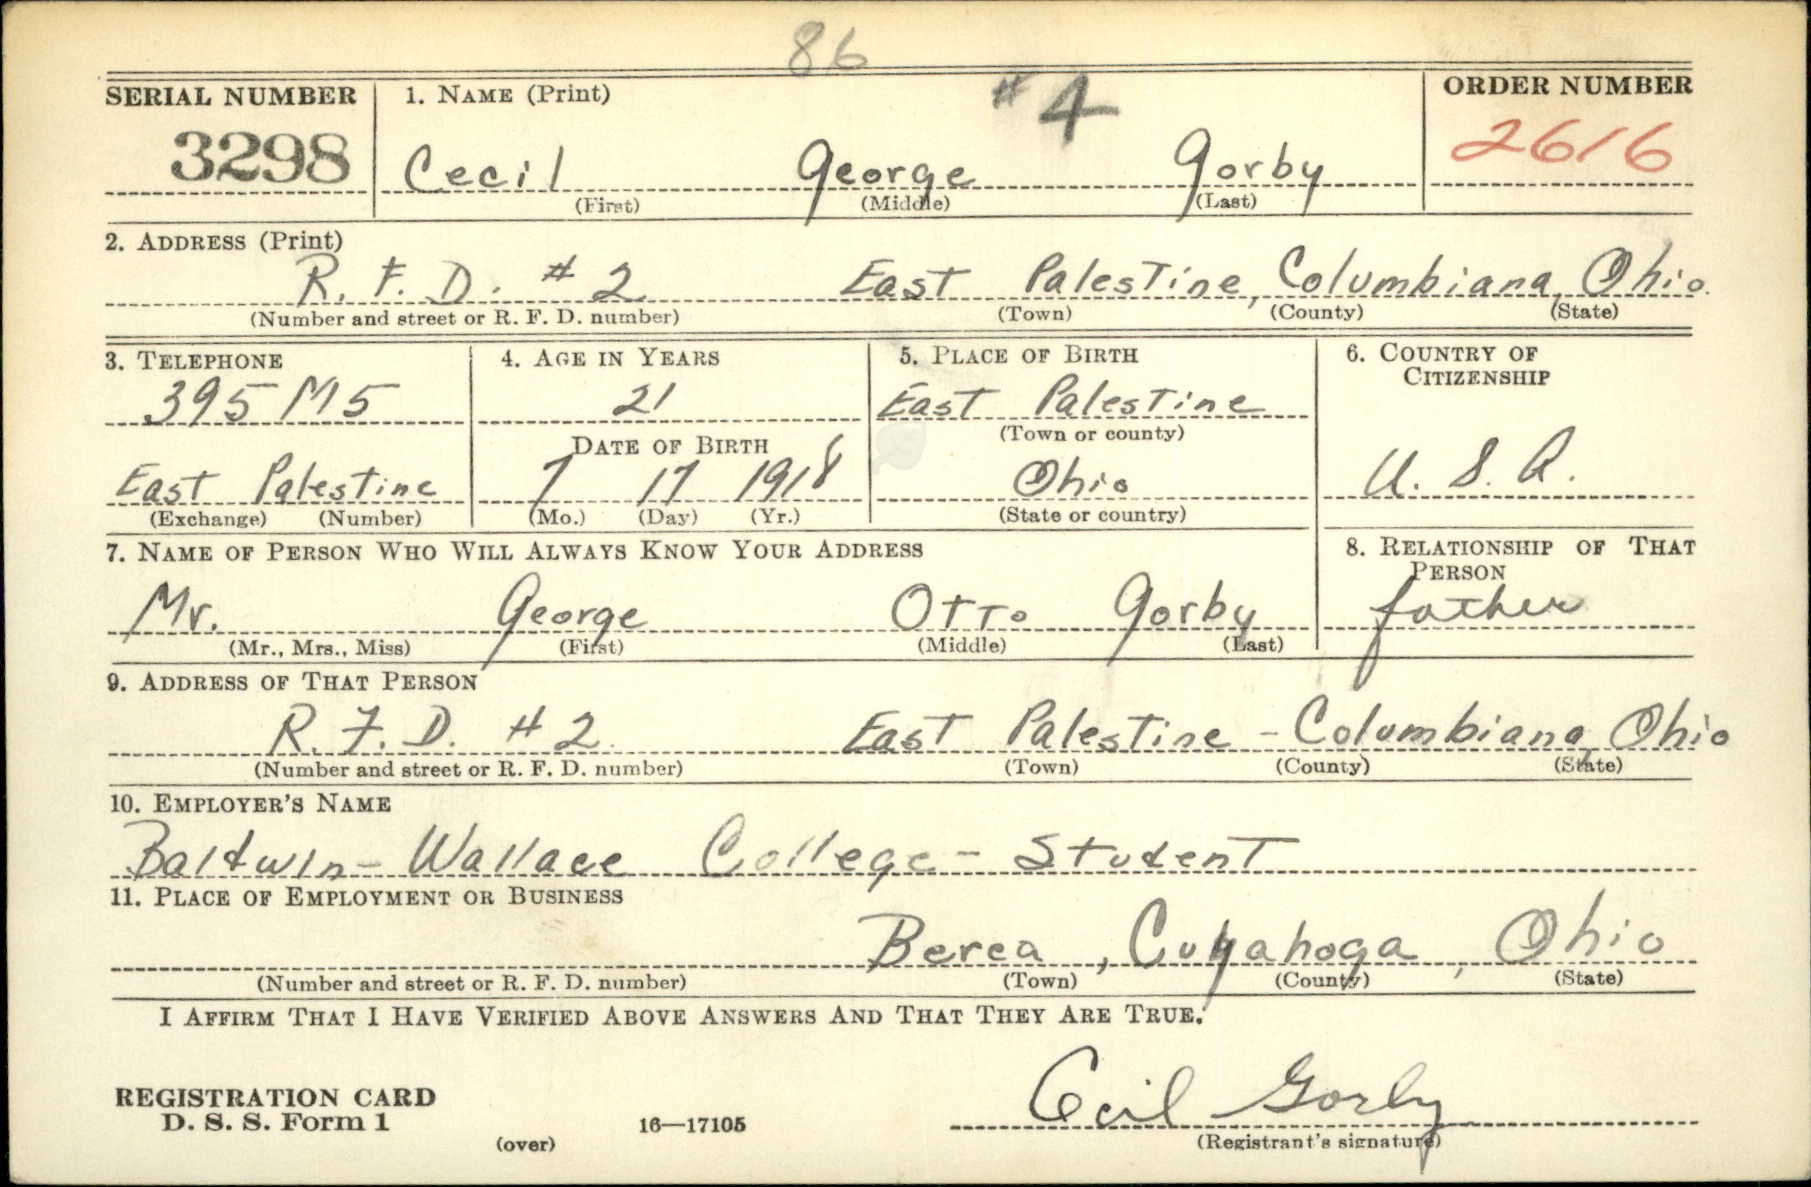 86
SERIAL NUMBER 1. NAME (Print) # 4 ORDER NUMBER
3298 Cecil George Gorby 2616
(First) (Middle) (Last)
2. ADDRESS (Print)
R. F. D. # 2 East Palestine, Columbiana, Ohio.
(Number and street or R. F. D. number) (Town) (County) (State)
3. TELEPHONE 4. AGE IN YEARS 5. PLACE OF BIRTH 6. COUNTRY OF CITIZENSHIP
395 M 5 21 East Palestine
(Town or county)
DATE OF BIRTH
East Palestine 7 17 1918 Ohio U. S. A.
(Exchange) (Number) (Mo.) (Day) (Yr.) (State or country)
7. NAME OF PERSON WHO WILL ALWAYS KNOW YOUR ADDRESS 8. RELATIONSHIP OF THAT PERSON
Mr. George Otto Gorby father
(Mr., Mrs., Miss) (First) (Middle) (Last)
9. ADDRESS OF THAT PERSON
R. F. D. # 2 East Palestine - Columbiana, Ohio
(Number and street or R. F. D. number) (Town) (County) (State)
10. EMPLOYER'S NAME
Baldwin-Wallace College - Student
11. PLACE OF EMPLOYMENT OR BUSINESS
Berea, Cuyahoga, Ohio
(Number and street or R. F. D. number) (Town) (County) (State)
I AFFIRM THAT I HAVE VERIFIED ABOVE ANSWERS AND THAT THEY ARE TRUE.
Cecil Gorby
REGISTRATION CARD
D. S. S. Form 1 (over) 16—17105 (Registrant's signature)